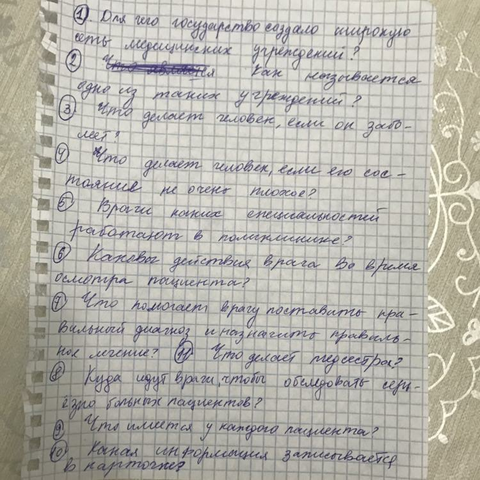 ① Для чего государство создало широкую
сеть медицинских учреждений?
② Как называется
одно из таких учреждений?
③ Что делает человек, если он забо-
леет?
④ Что делает человек, если его сос-
тояние не очень плохое?
⑤ Врачи каких специальностей
работают в поликлинике?
⑥ Каковы действия врача во время
осмотра пациента?
⑦ Что помогает врачу поставить пра-
вильный диагноз и назначить правиль-
ное лечение? ⑪ Что делает медсестра?
⑧ Куда идут врачи, чтобы обследовать серь-
ёзно больных пациентов?
⑨ Что имеется у каждого пациента?
⑩ Какая информация записывается
в карточке?